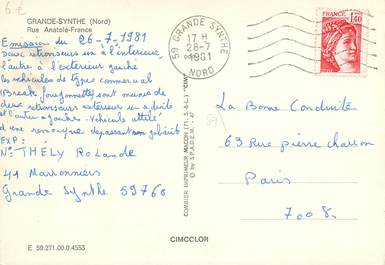 6€
GRANDE-SYNTHE (Nord)
Rue Anatole-France
Emission du 26-7-1981
deux rétroviseurs un à l'intérieur,
autre à l'extérieur gauche
les véhicules de types commercial
(Break fourgonnette) sont munis de
deux rétroviseurs extérieur un a droite
et l'autre a gauche. Véhicule attelé
d'une remorque dépassant son gabarit
EXP:
THÉLY Rolande
41 Marronniers
Grande Synthe 59760
E 59.271.00.0.4553
COMBIER IMPRIMEUR MACON (71, S.-&-L.) "CIM"
© by S.P.A.D.E.M.
CIMCOLOR
59 GRANDE SYNTHE
17 H
28-7
1981
NORD
FRANCE
1,40
La Bonne Conduite
63 Rue pierre charron
Paris
7008.